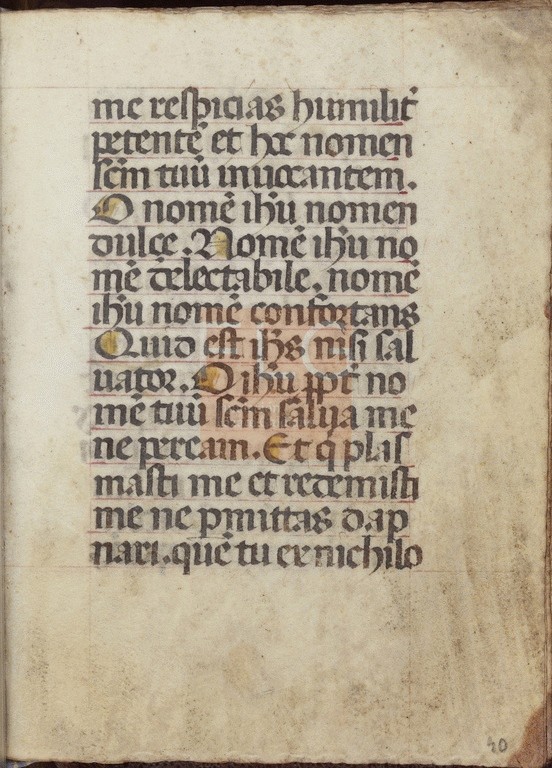 me respicias humilit̄
petentē et hoc nomen
scm̄ tuū inuocantem.
O nomē ihū nomen
dulce. Nomē ihū no
mē delectabile. nomē
ihū nomē confortans
Quid est ihs̄ nisi sal
uator. O ihū ppt̄ no
mē tuū scm̄ salua me
ne peream. Et q̄ plas
masti me et redemisti
me ne pmittas dāp
nari. quē tu ex nichilo
40